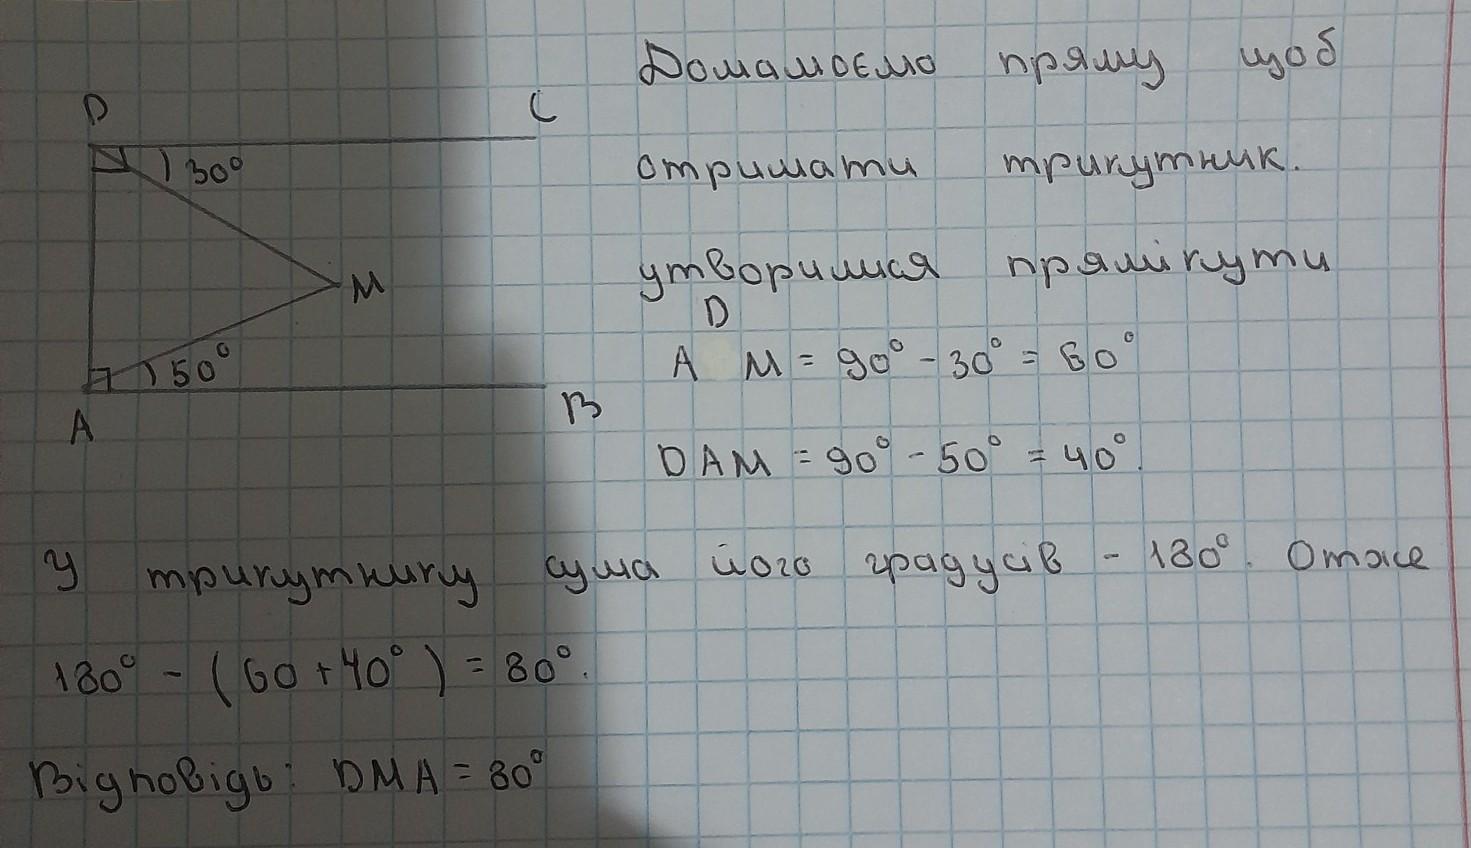 D
C
30°
M
50°
A
B
Домалюємо пряму щоб
отримати трикутник.
утворилися прямі кути
D
A M = 90° - 30° = 60°
DAM = 90° - 50° = 40°.
У трикутнику сума його градусів - 180°. Отже
180° - (60 + 40°) = 80°.
Відповідь: DMA = 80°